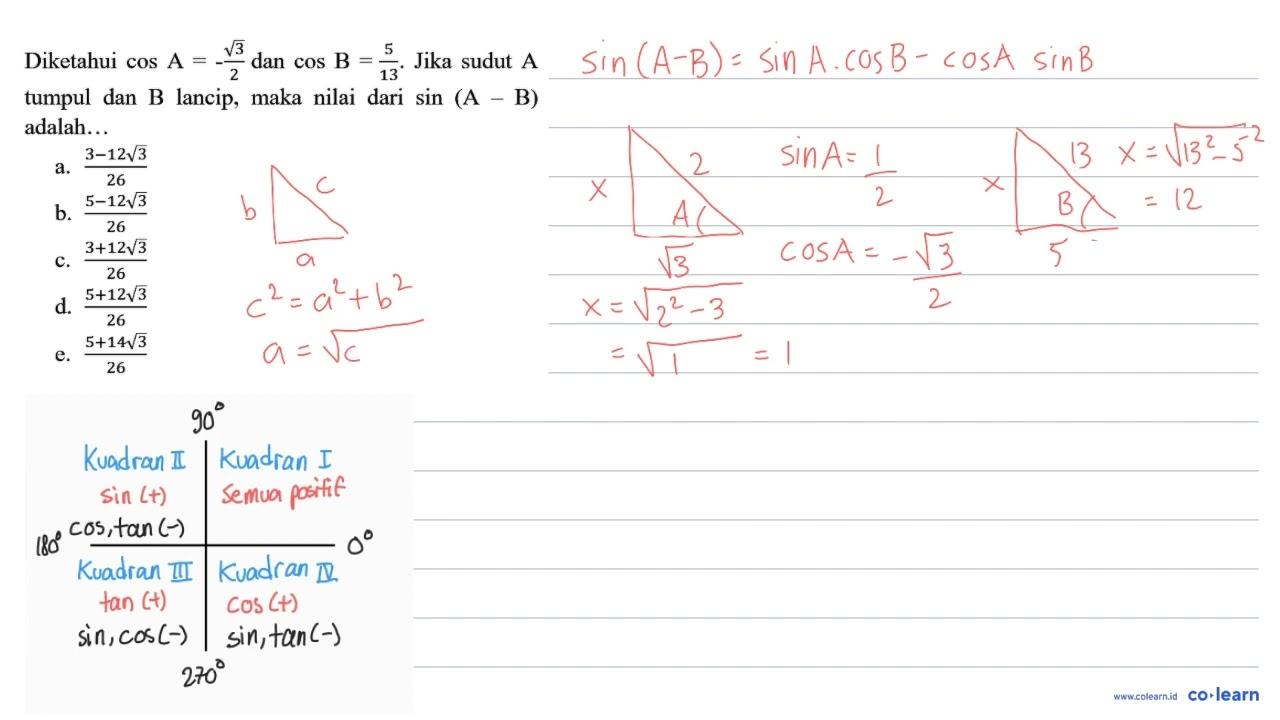 Diketahui cos A = -√3/2 dan cos B = 5/13. Jika sudut A
tumpul dan B lancip, maka nilai dari sin (A – B)
adalah…
a. 3−12√3/26
b. 5−12√3/26
c. 3+12√3/26
d. 5+12√3/26
e. 5+14√3/26
b
c
a
c² = a² + b²
a = √c
sin (A-B) = sin A . cos B - cos A sin B
x
2
A
√3
x = √2² - 3
= √1 = 1
sin A = 1/2
cos A = -√3/2
x
13
B
5
x = √13² - 5⁻²
= 12
90°
Kuadran II
sin (+)
cos, tan (-)
Kuadran I
Semua positif
180°
0°
Kuadran III
tan (+)
sin, cos (-)
Kuadran IV
cos (+)
sin, tan (-)
270°
www.colearn.id co·learn